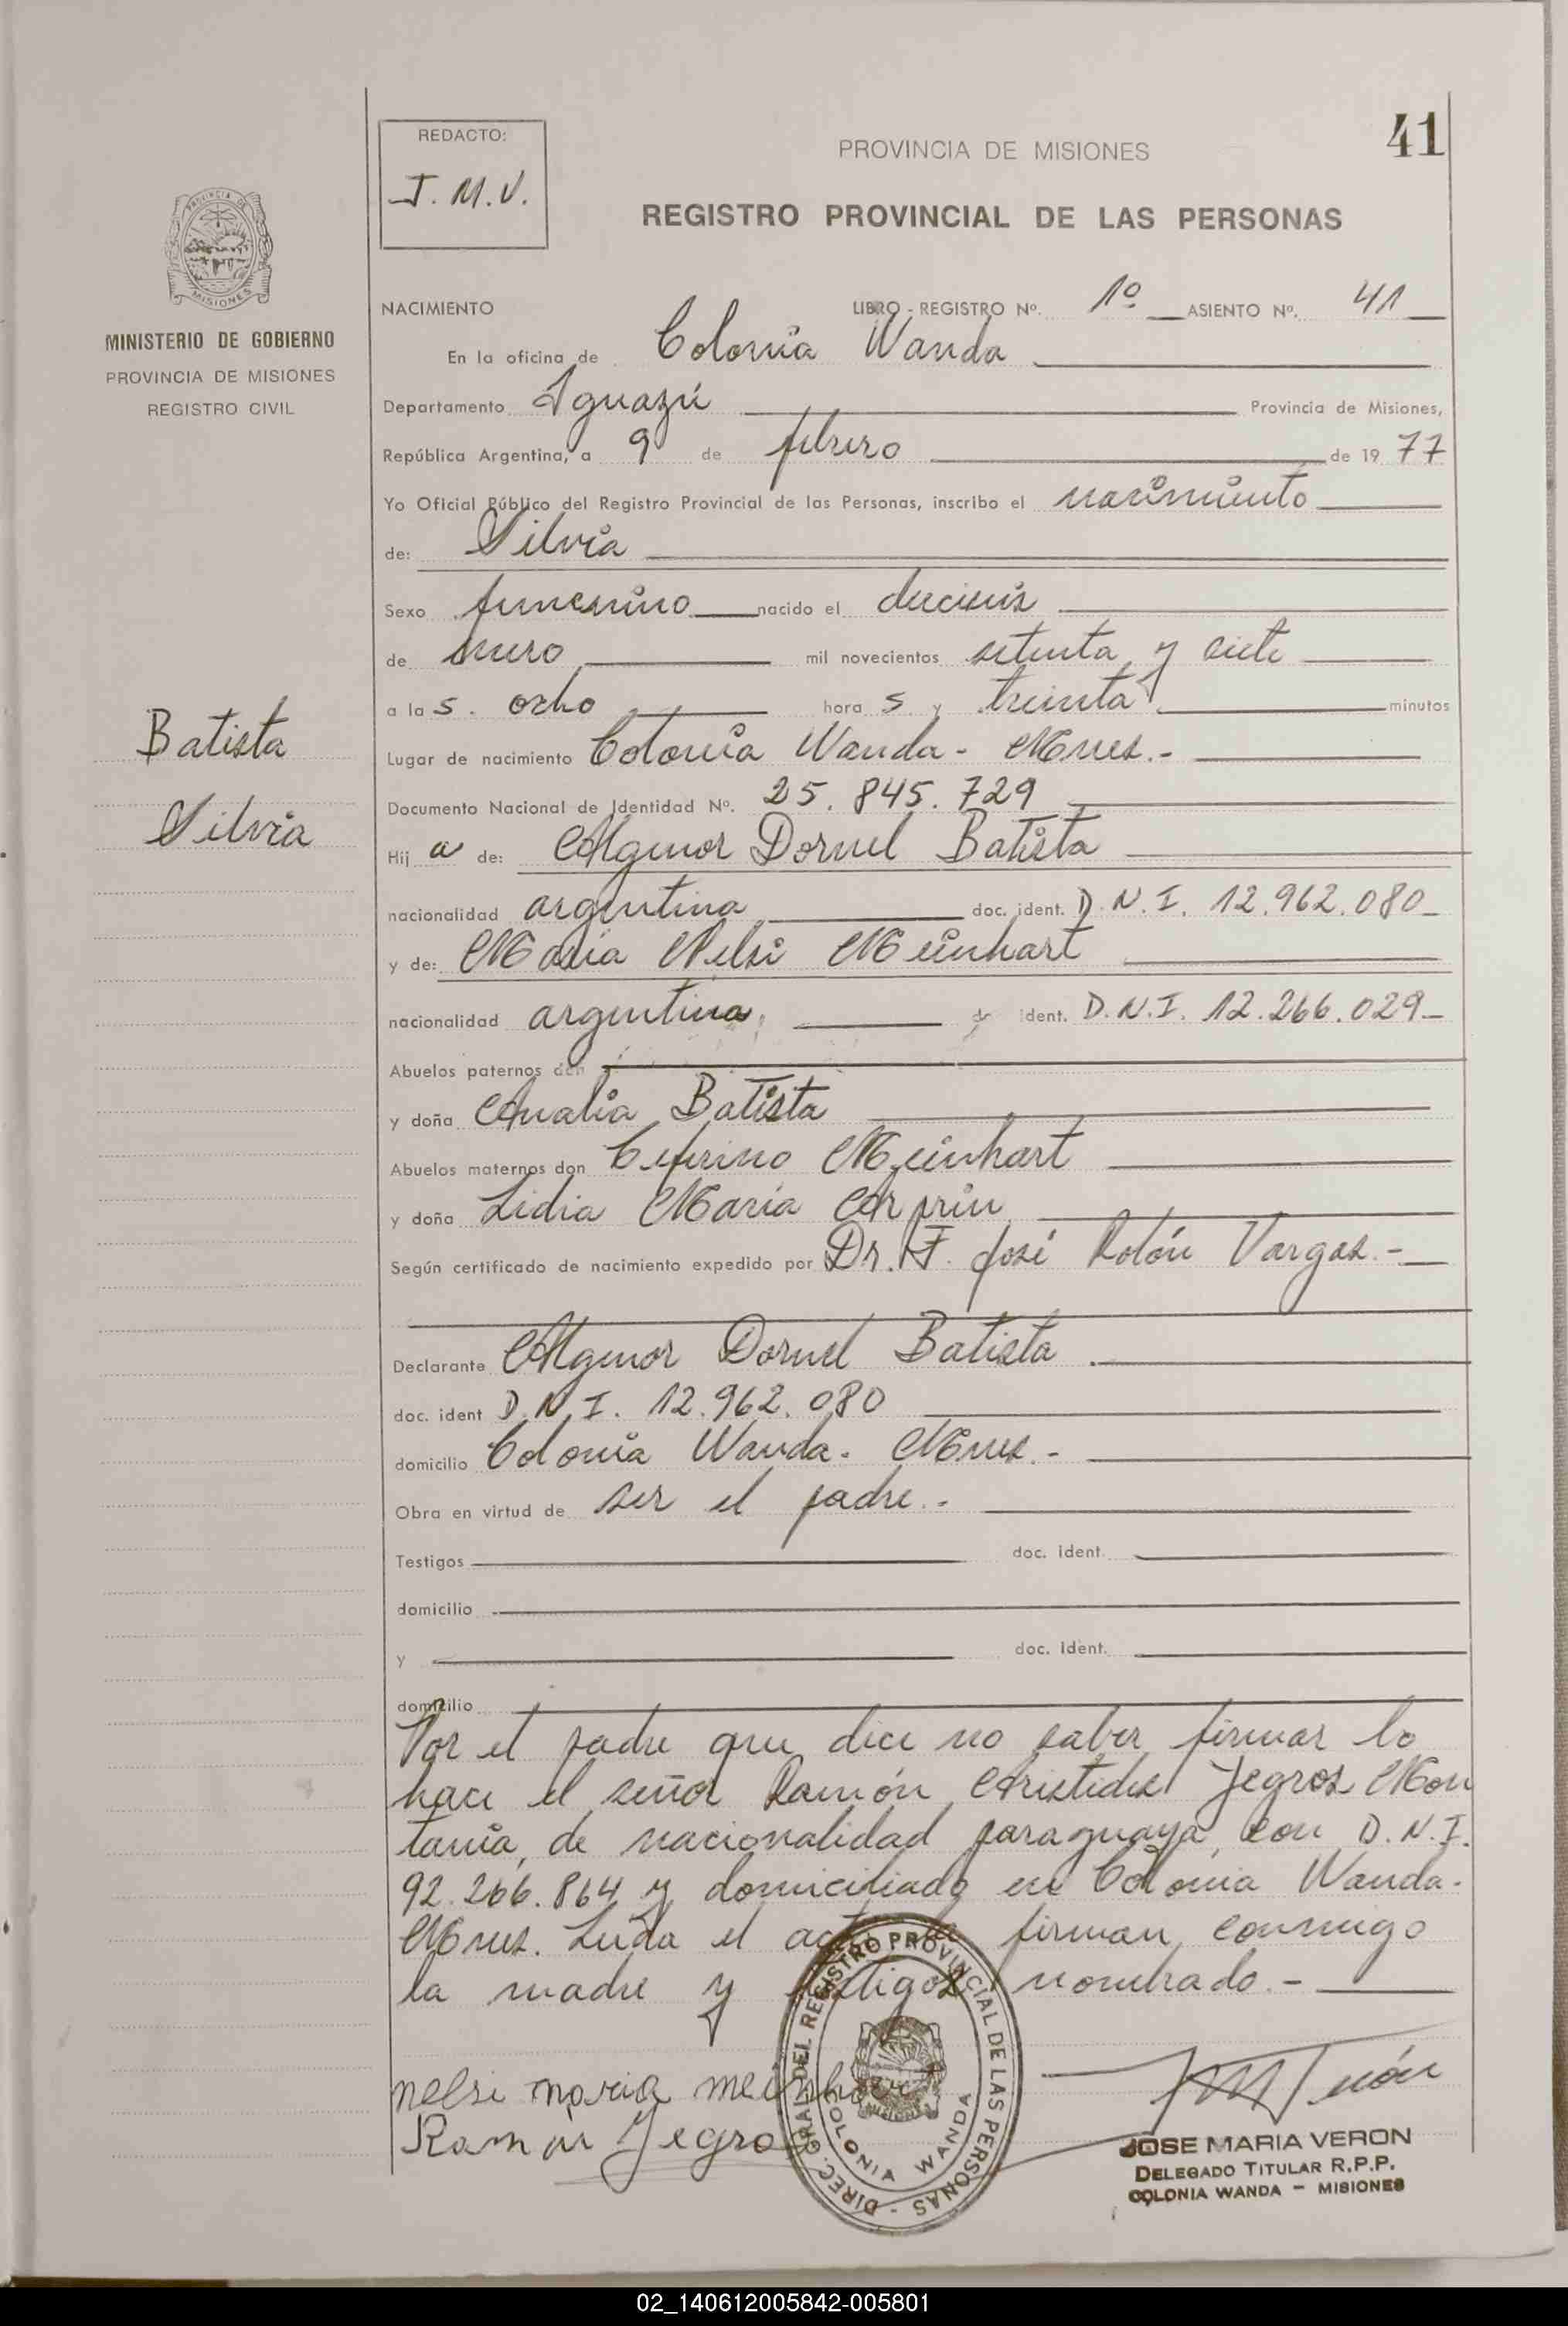 41
REDACTO:
J. M. V.
PROVINCIA DE MISIONES
REGISTRO PROVINCIAL DE LAS PERSONAS
PROVINCIA DE
MISIONES
MINISTERIO DE GOBIERNO
PROVINCIA DE MISIONES
REGISTRO CIVIL
Batista
Silvia
NACIMIENTO LIBRO - REGISTRO Nº. 1º ASIENTO Nº. 41
En la oficina de Colonia Wanda
Departamento Iguazú Provincia de Misiones,
República Argentina, a 9 de febrero de 19 77
Yo Oficial Público del Registro Provincial de las Personas, inscribo el nacimiento
de: Silvia
Sexo femenino nacido el dieciseis
de enero mil novecientos setenta y siete
a la s. ocho hora s y treinta minutos
Lugar de nacimiento Colonia Wanda - Mnes.-
Documento Nacional de Identidad Nº. 25.845.729
Hij a de: Algenor Dornel Batista
nacionalidad argentina doc. ident. D.N.I. 12.962.080
y de: Maria Nelsi Meinhart
nacionalidad argentina, ident. D.N.I. 12.266.029
Abuelos paternos don
y doña Analia Batista
Abuelos maternos don Ceferino Meinhart
y doña Lidia Maria
Según certificado de nacimiento expedido por Dr. F. José Rolón Vargas.-
Declarante Algenor Dornel Batista
doc. ident D.N.I. 12.962.080
domicilio Colonia Wanda - Mnes.-
Obra en virtud de ser el padre.-
Testigos doc. ident.
domicilio
y doc. Ident.
domicilio
Por el padre que dice no saber firmar lo
hace el señor Ramón Aristides Jegros Mon
tania, de nacionalidad paraguaya, con D.N.I.
92.266.864 y domiciliado en Colonia Wanda-
Mnes. Leida el acta firman conmigo
la madre y testigo nombrado.-
nelsi maria meinhart
Ramon Jegros
DIREC. GRAL. DEL REGISTRO PROVINCIAL DE LAS PERSONAS -
COLONIA WANDA
JOSE MARIA VERON
DELEGADO TITULAR R.P.P.
COLONIA WANDA - MISIONES
02_140612005842-005801